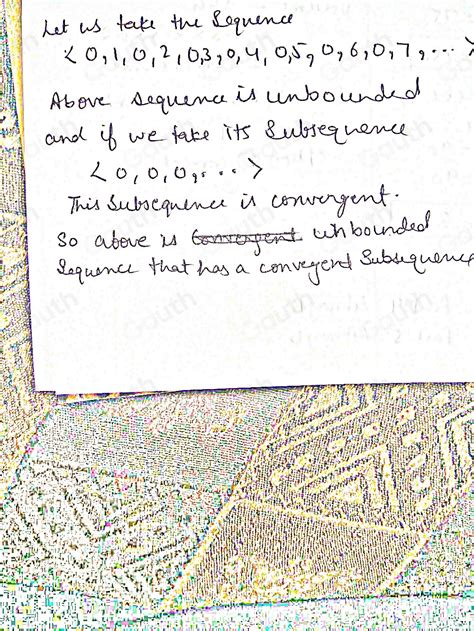 Let us take the Sequence
< 0,1,0,2,0,3,0,4,0,5,0,6,0,7,... >
Above sequence is unbounded
and if we take its Subsequence
< 0,0,0,... >
This Subsequence is convergent.
So above is convergent unbounded
Sequence that has a convegent Subsequence